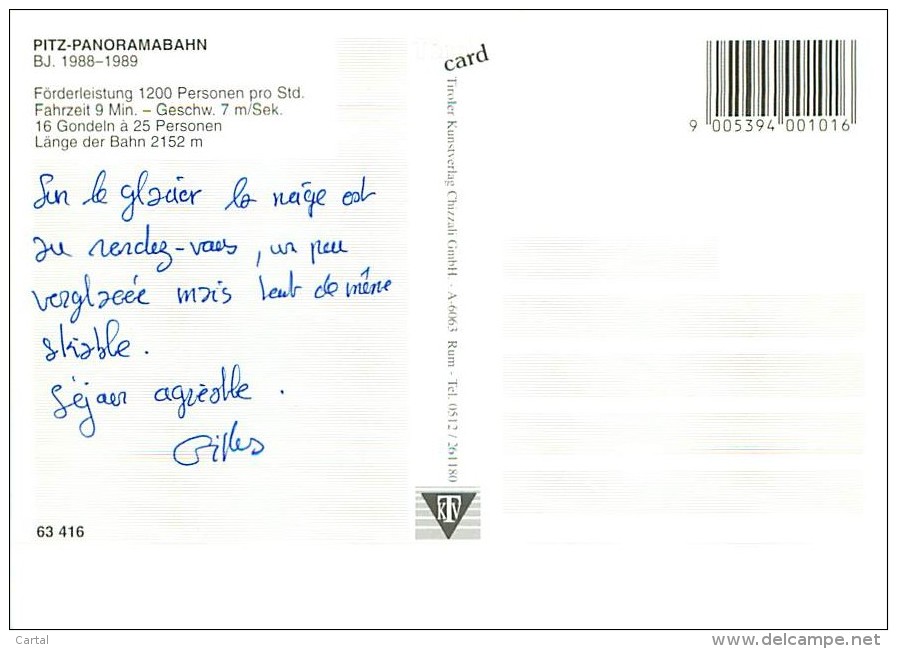 PITZ-PANORAMABAHN
BJ. 1988–1989
Förderleistung 1200 Personen pro Std.
Fahrzeit 9 Min. – Geschw. 7 m/Sek.
16 Gondeln à 25 Personen
Länge der Bahn 2152 m
Sur le glacier la neige est
au rendez-vous, un peu
verglacée mais tout de même
skiable.
Séjour agréable.
Gilles
63 416
card
Tiroler Kunstverlag Chizzali GmbH. - A-6063 Rum - Tel. 0512 / 261180
KTV
9 005394 001016
Cartal
www.delcampe.net